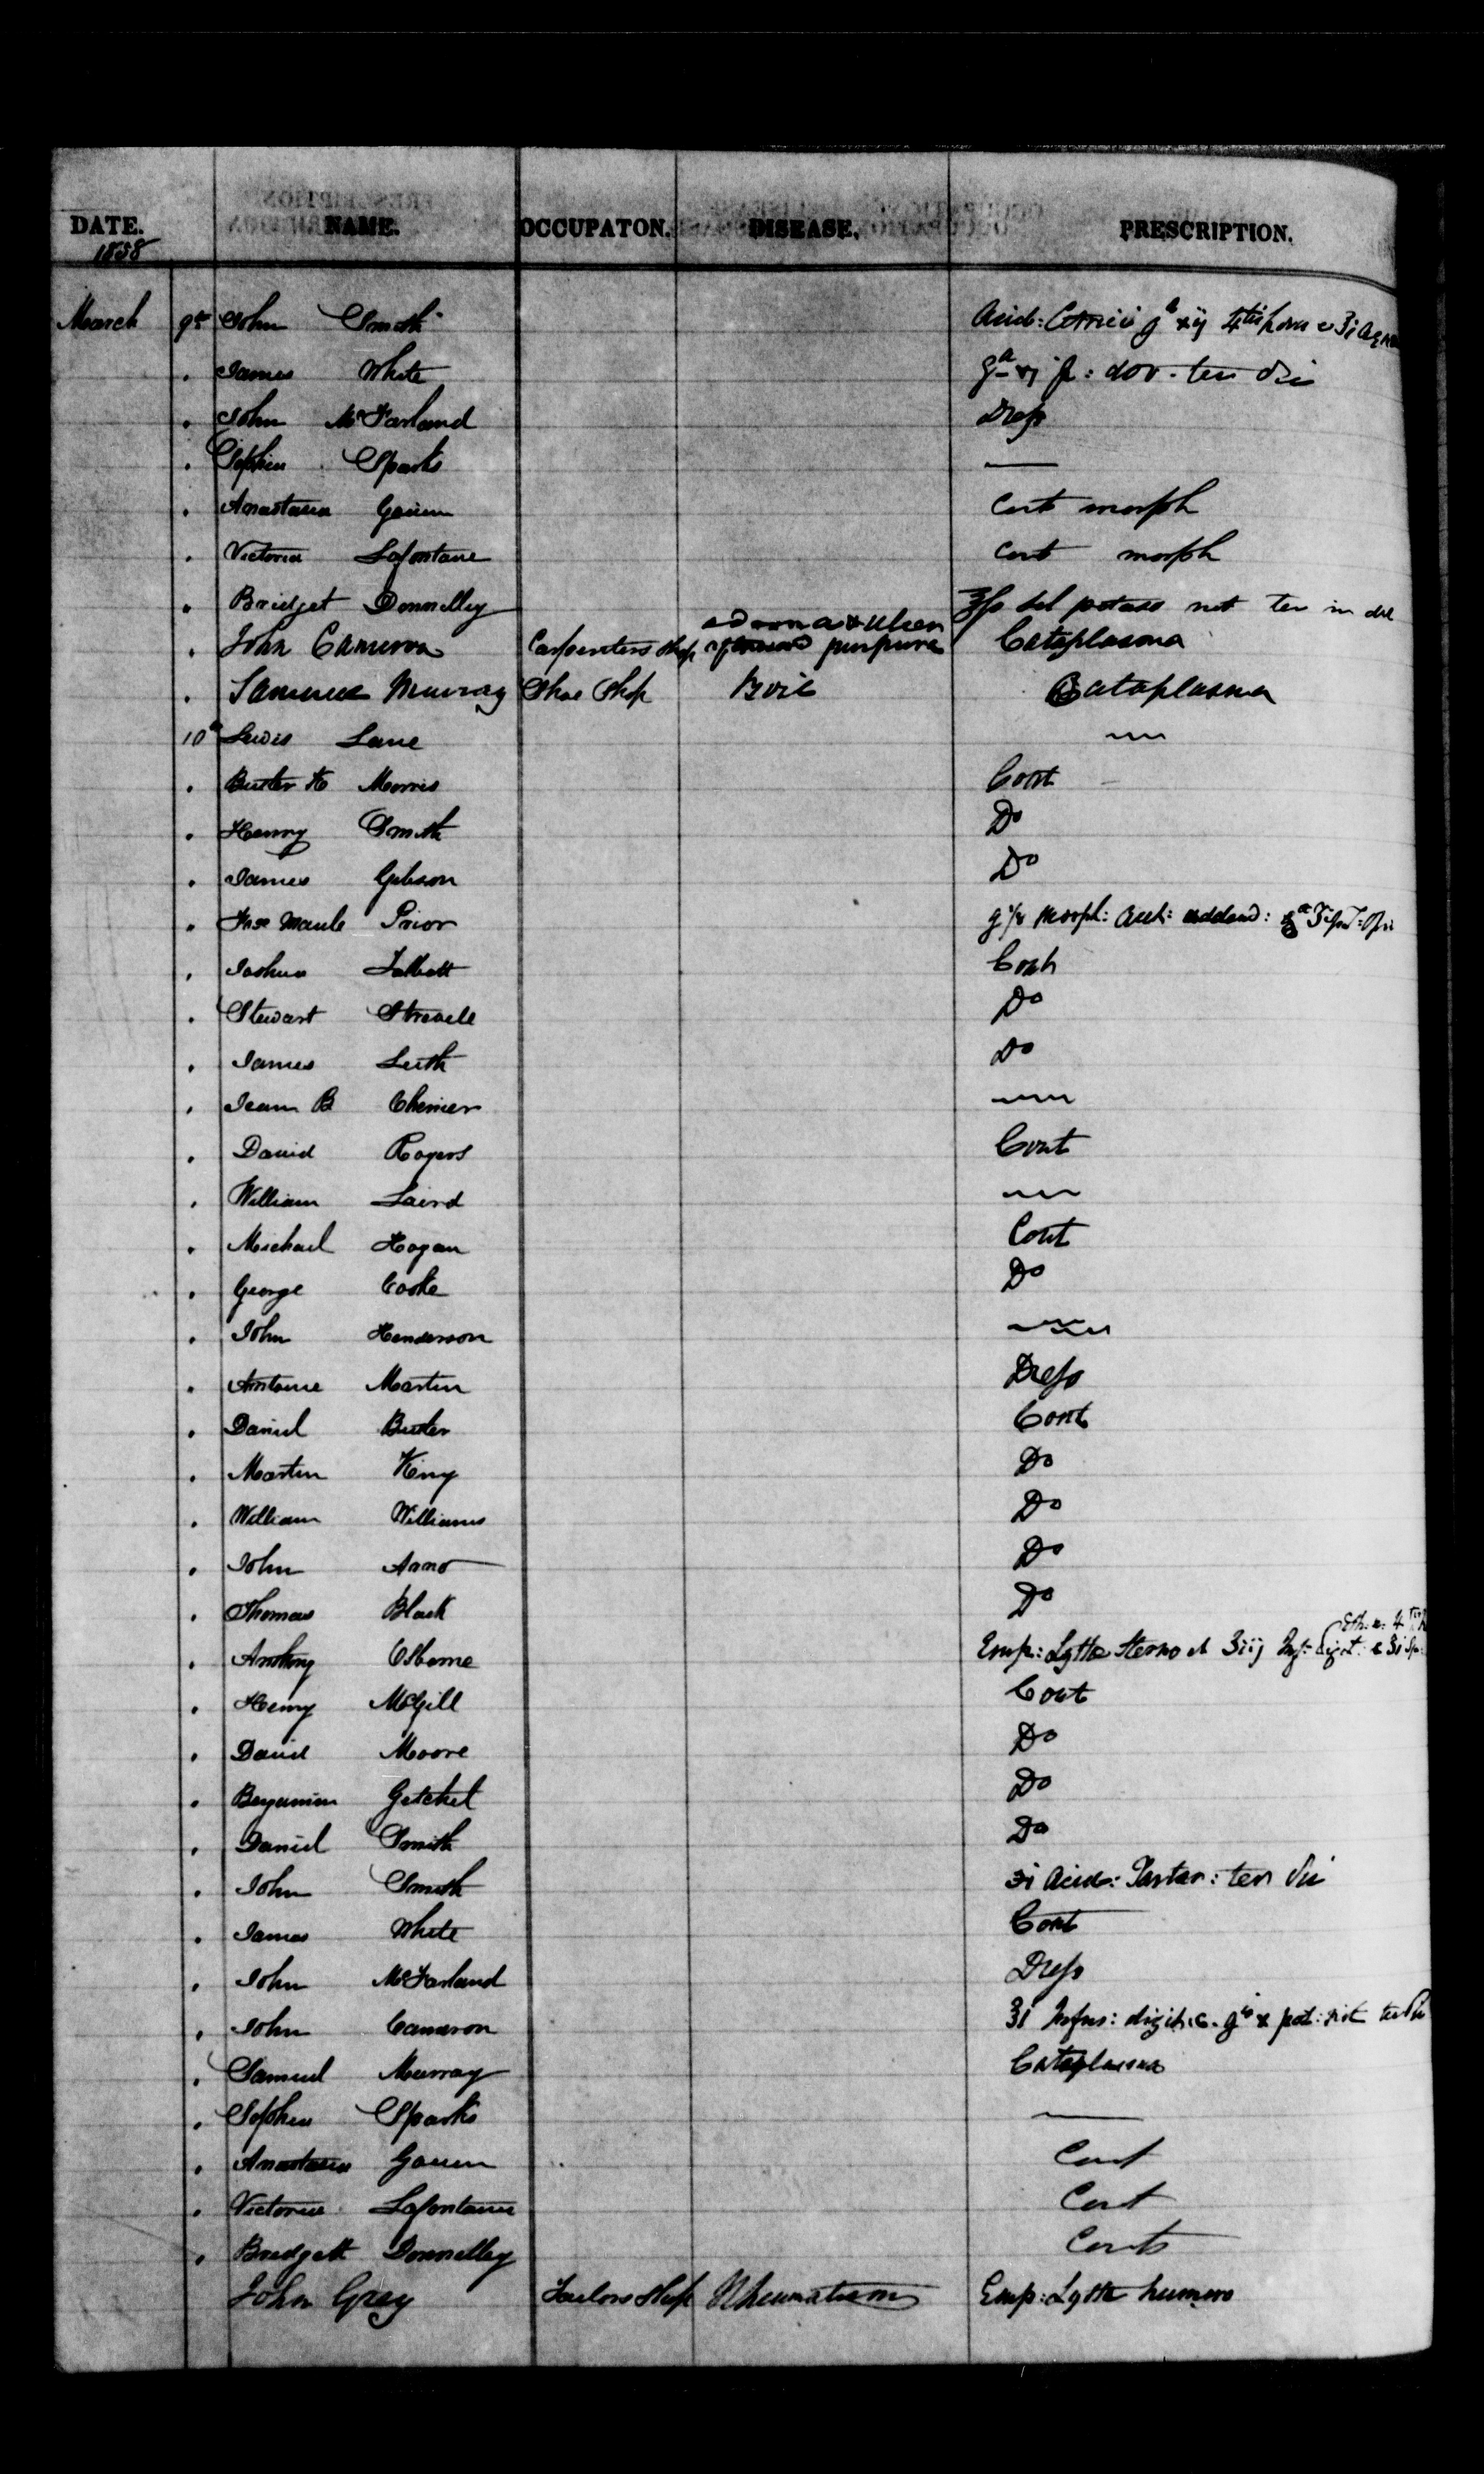 DATE. NAME. OCCUPATON. DISEASE. PRESCRIPTION.
1858
March 9th John Smith Acid: 4tis hora
" James White gr vj p: dov. ter die
" John McFarland Dress
" Sophia Sparks —
" Anastasia Gouin Cont morph
" Victoria Lafontaine Cont morph
" Bridget Donnelly Sol potass nit ter in die
" John Cameron Carpenters Shop purpura Cataplasma
" Samuel Murray Shoe Shop Boil Cataplasma
10th Lewis Lane
" Butler Morris Cont
" Henry Smith Do
" James Gibson Do
" Prior Morph: Acet:
" Joshua Talbott Cont
" Stewart Strevell Do
" James Leith Do
" Jean B Chenier
" David Rogers Cont
" William Laird
" Michael Hogan Cont
" George Cooke Do
" John Henderson
" Antoine Martin Dress
" Daniel Butler Cont
" Martin King Do
" William Williams Do
" John Anno Do
" Thomas Black Do
" Anthony Osborne Emp: Lyttae Sterno et
" Henry McGill Cont
" David Moore Do
" Benjamin Getchel Do
" Daniel Smith Do
" John Smith Acid: Tartar: ter die
" James White Cont
" John McFarland Dress
" John Cameron Infus: digit. c. grs x pot: nit ter die
" Samuel Murray Cataplasma
" Sophia Sparks —
" Anastasia Gouin Cont
" Victoria Lafontaine Cont
" Bridgett Donnelley Cont
John Grey Tailors Shop Rheumatism Emp: Lyttae humero